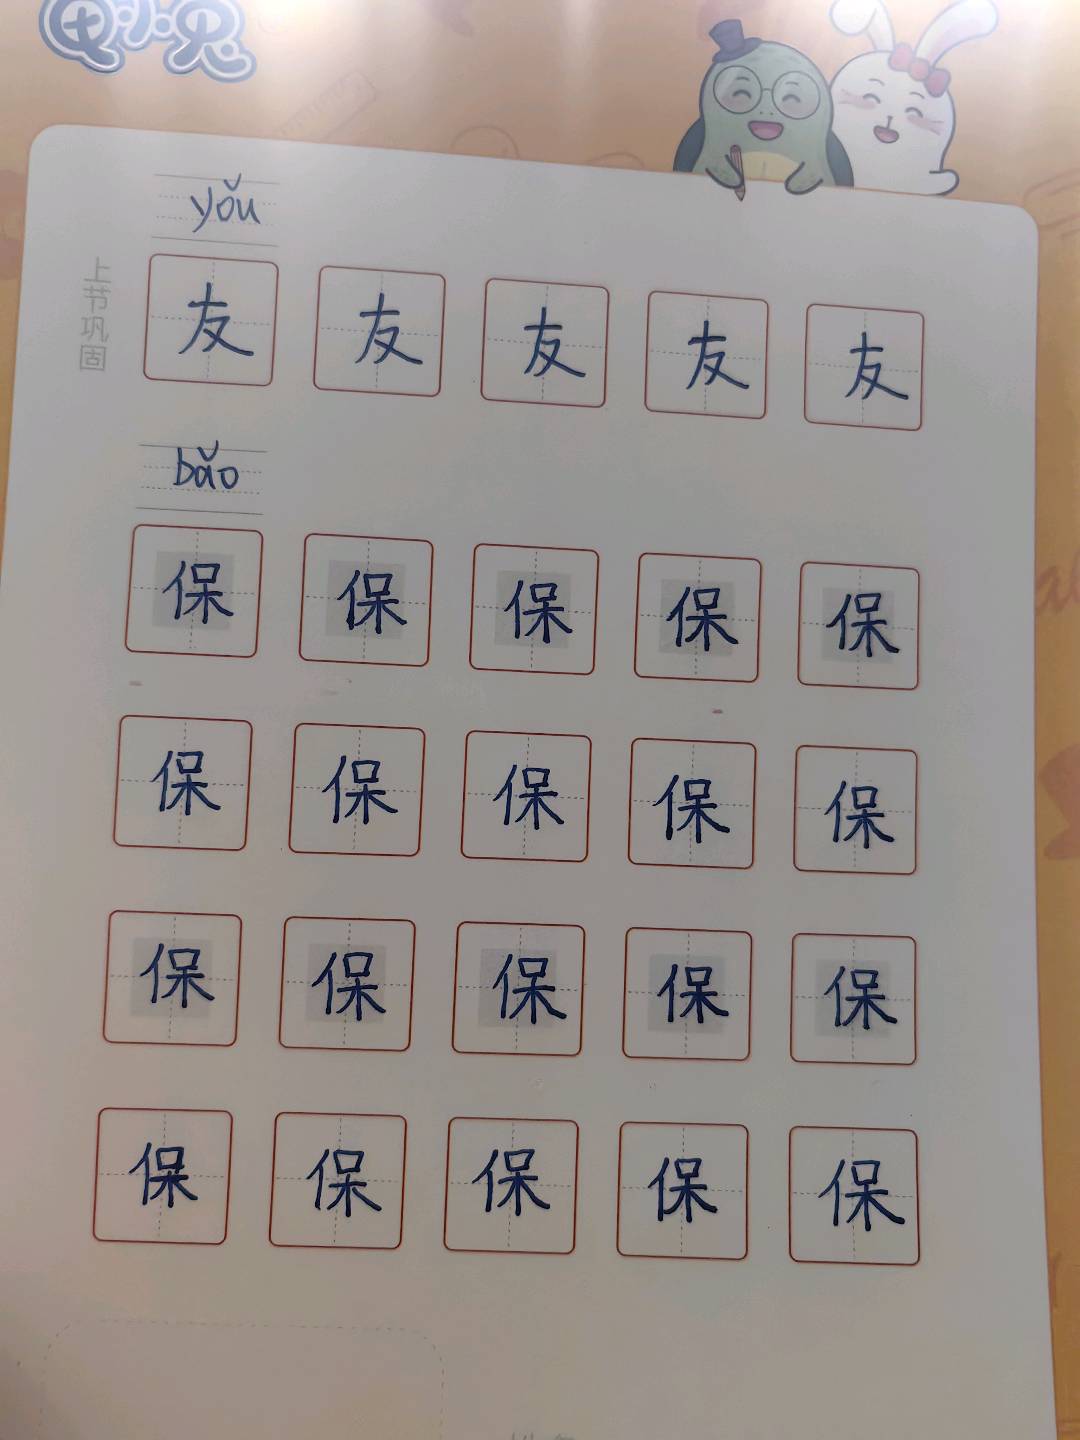 yǒu
上节巩固
友 友 友 友 友
bǎo
保 保 保 保 保
保 保 保 保 保
保 保 保 保 保
保 保 保 保 保